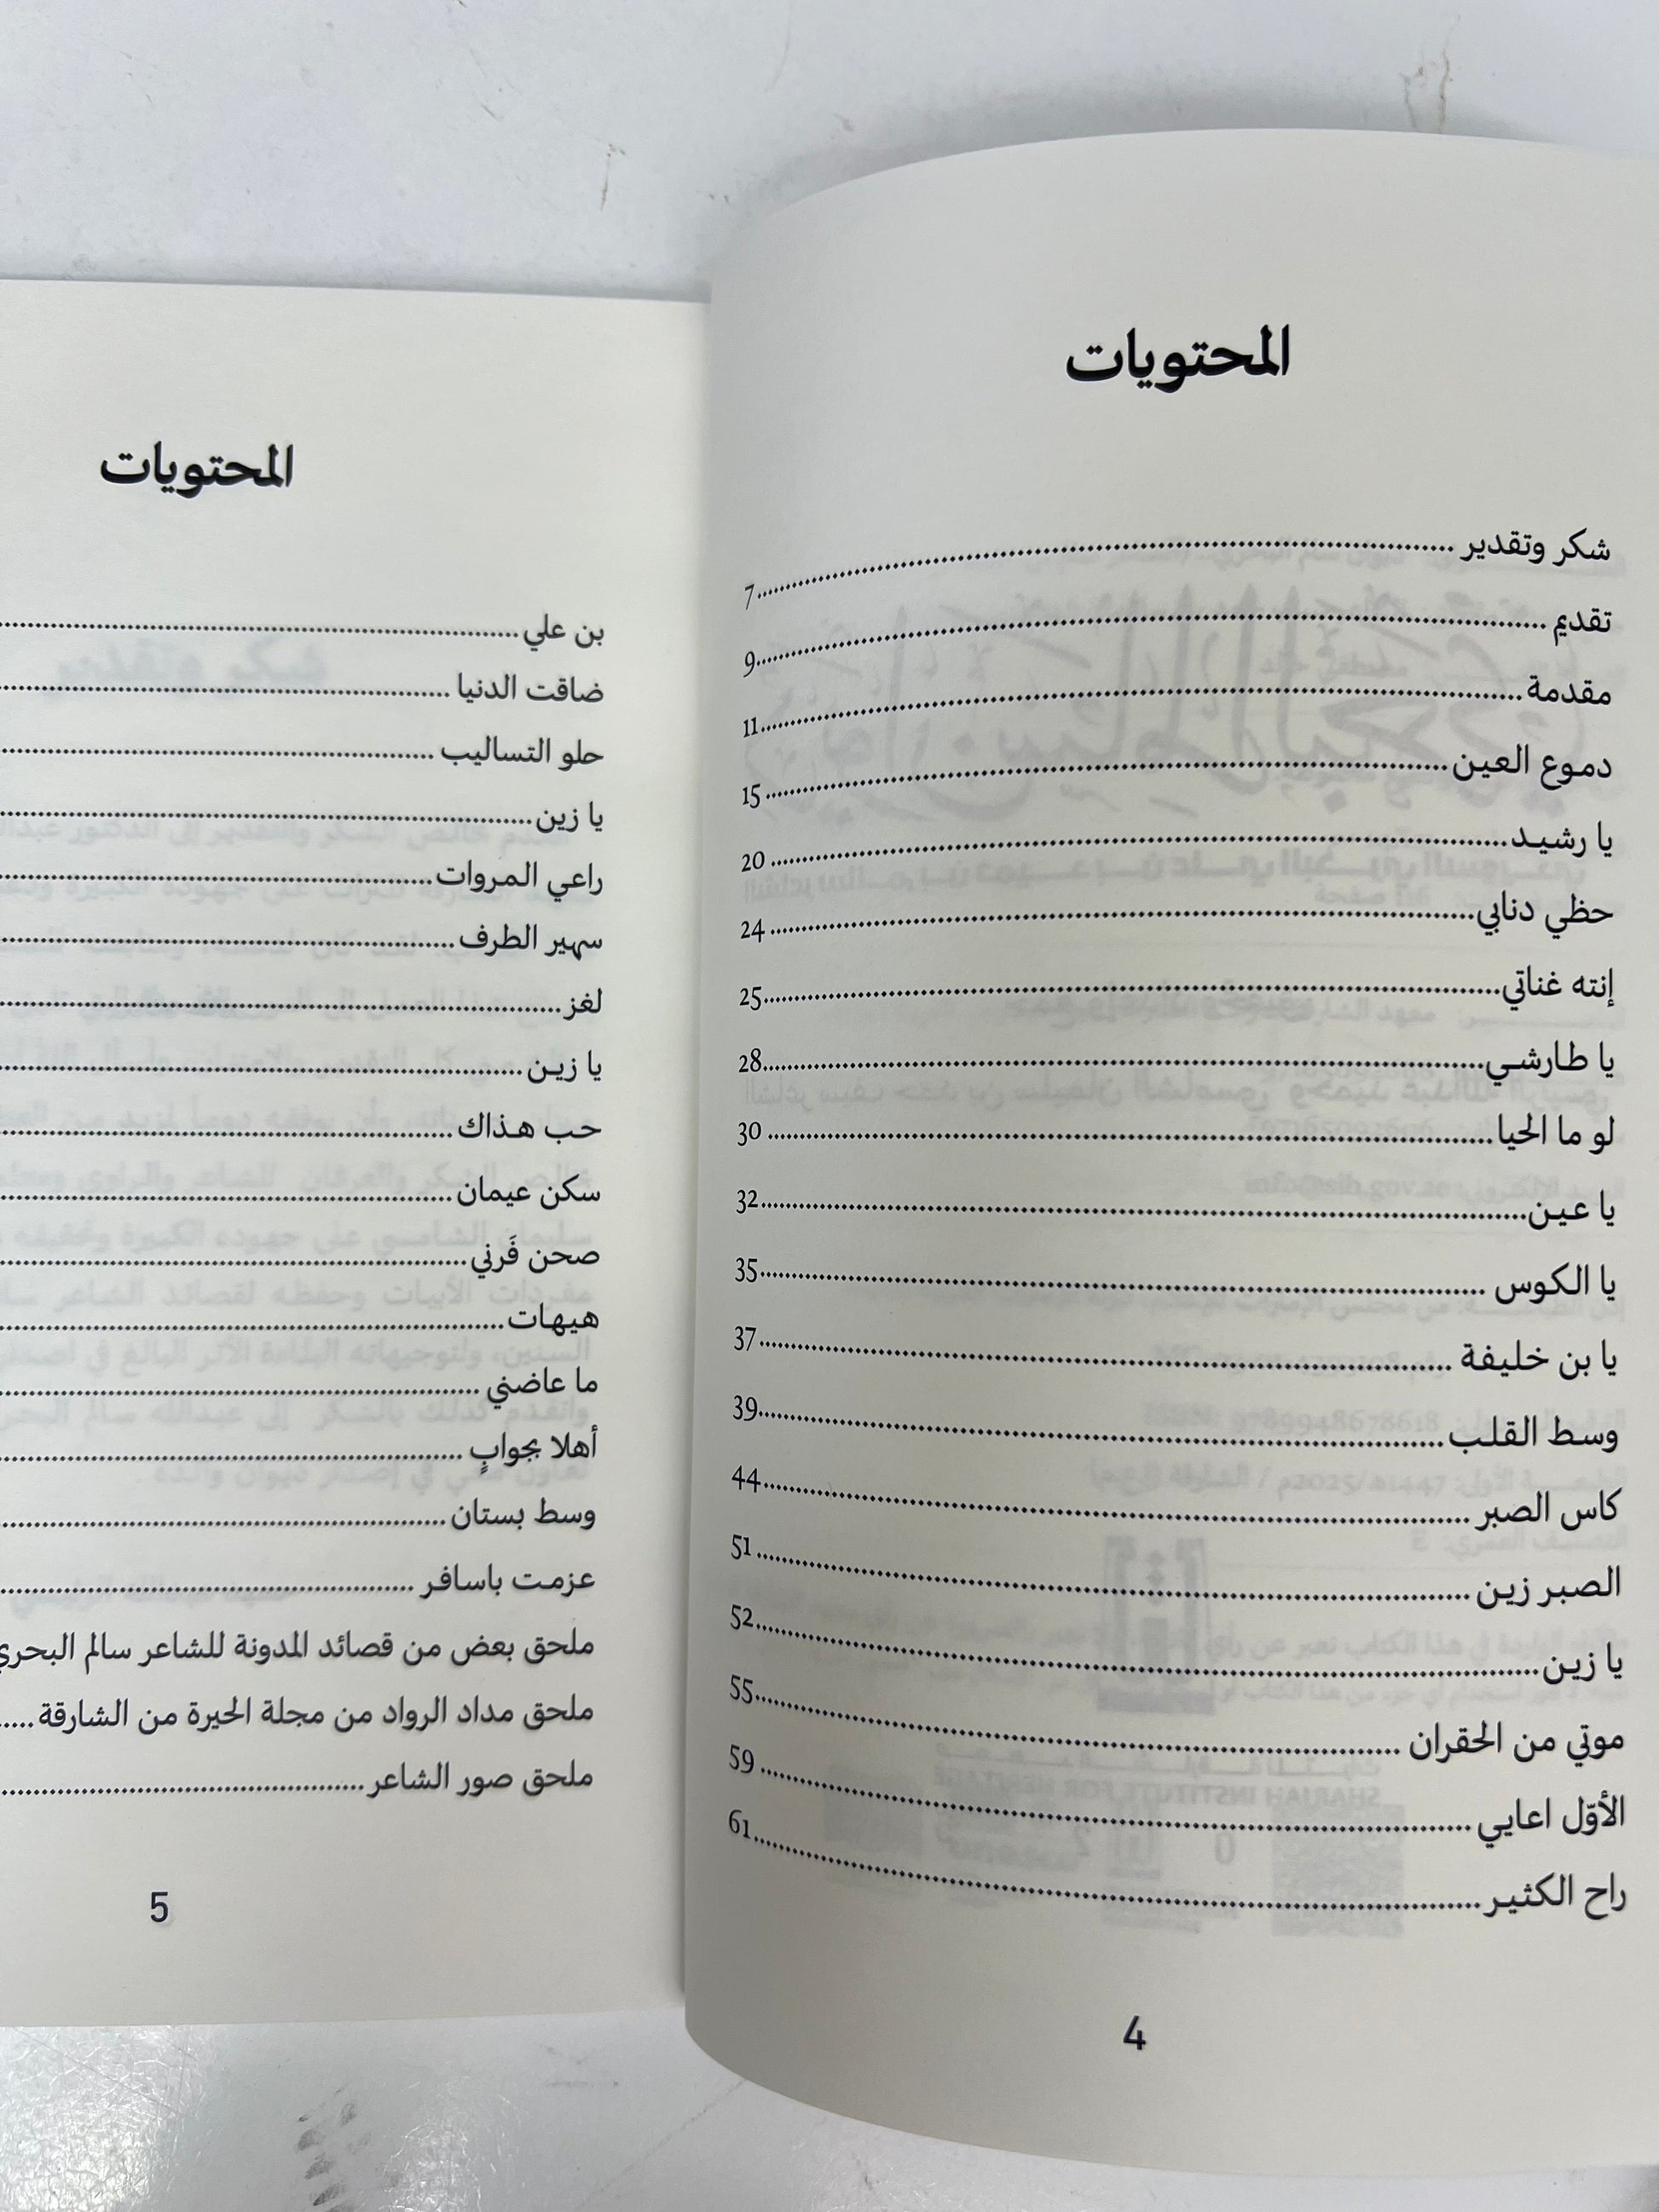 المحتويات
شكر وتقدير ........ 7
تقديم ........ 9
مقدمة ........ 11
دموع العين ........ 15
يا رشيد ........ 20
حظي دنابي ........ 24
إنته غناتي ........ 25
يا طارشي ........ 28
لو ما الحيا ........ 30
يا عين ........ 32
يا الكوس ........ 35
يا بن خليفة ........ 37
وسط القلب ........ 39
كاس الصبر ........ 44
الصبر زين ........ 51
يا زين ........ 52
موتي من الحقران ........ 55
الأوّل اعايي ........ 59
راح الكثير ........ 61
4
المحتويات
بن علي ........
ضاقت الدنيا ........
حلو التساليب ........
يا زين ........
راعي المروات ........
سهير الطرف ........
لغز ........
يا زين ........
حب هذاك ........
سكن عيمان ........
صحن فَرني ........
هيهات ........
ما عاضني ........
أهلا بجوابٍ ........
وسط بستان ........
عزمت باسافر ........
ملحق بعض من قصائد المدونة للشاعر سالم البحري
ملحق مداد الرواد من مجلة الحيرة من الشارقة .....
ملحق صور الشاعر ........
5